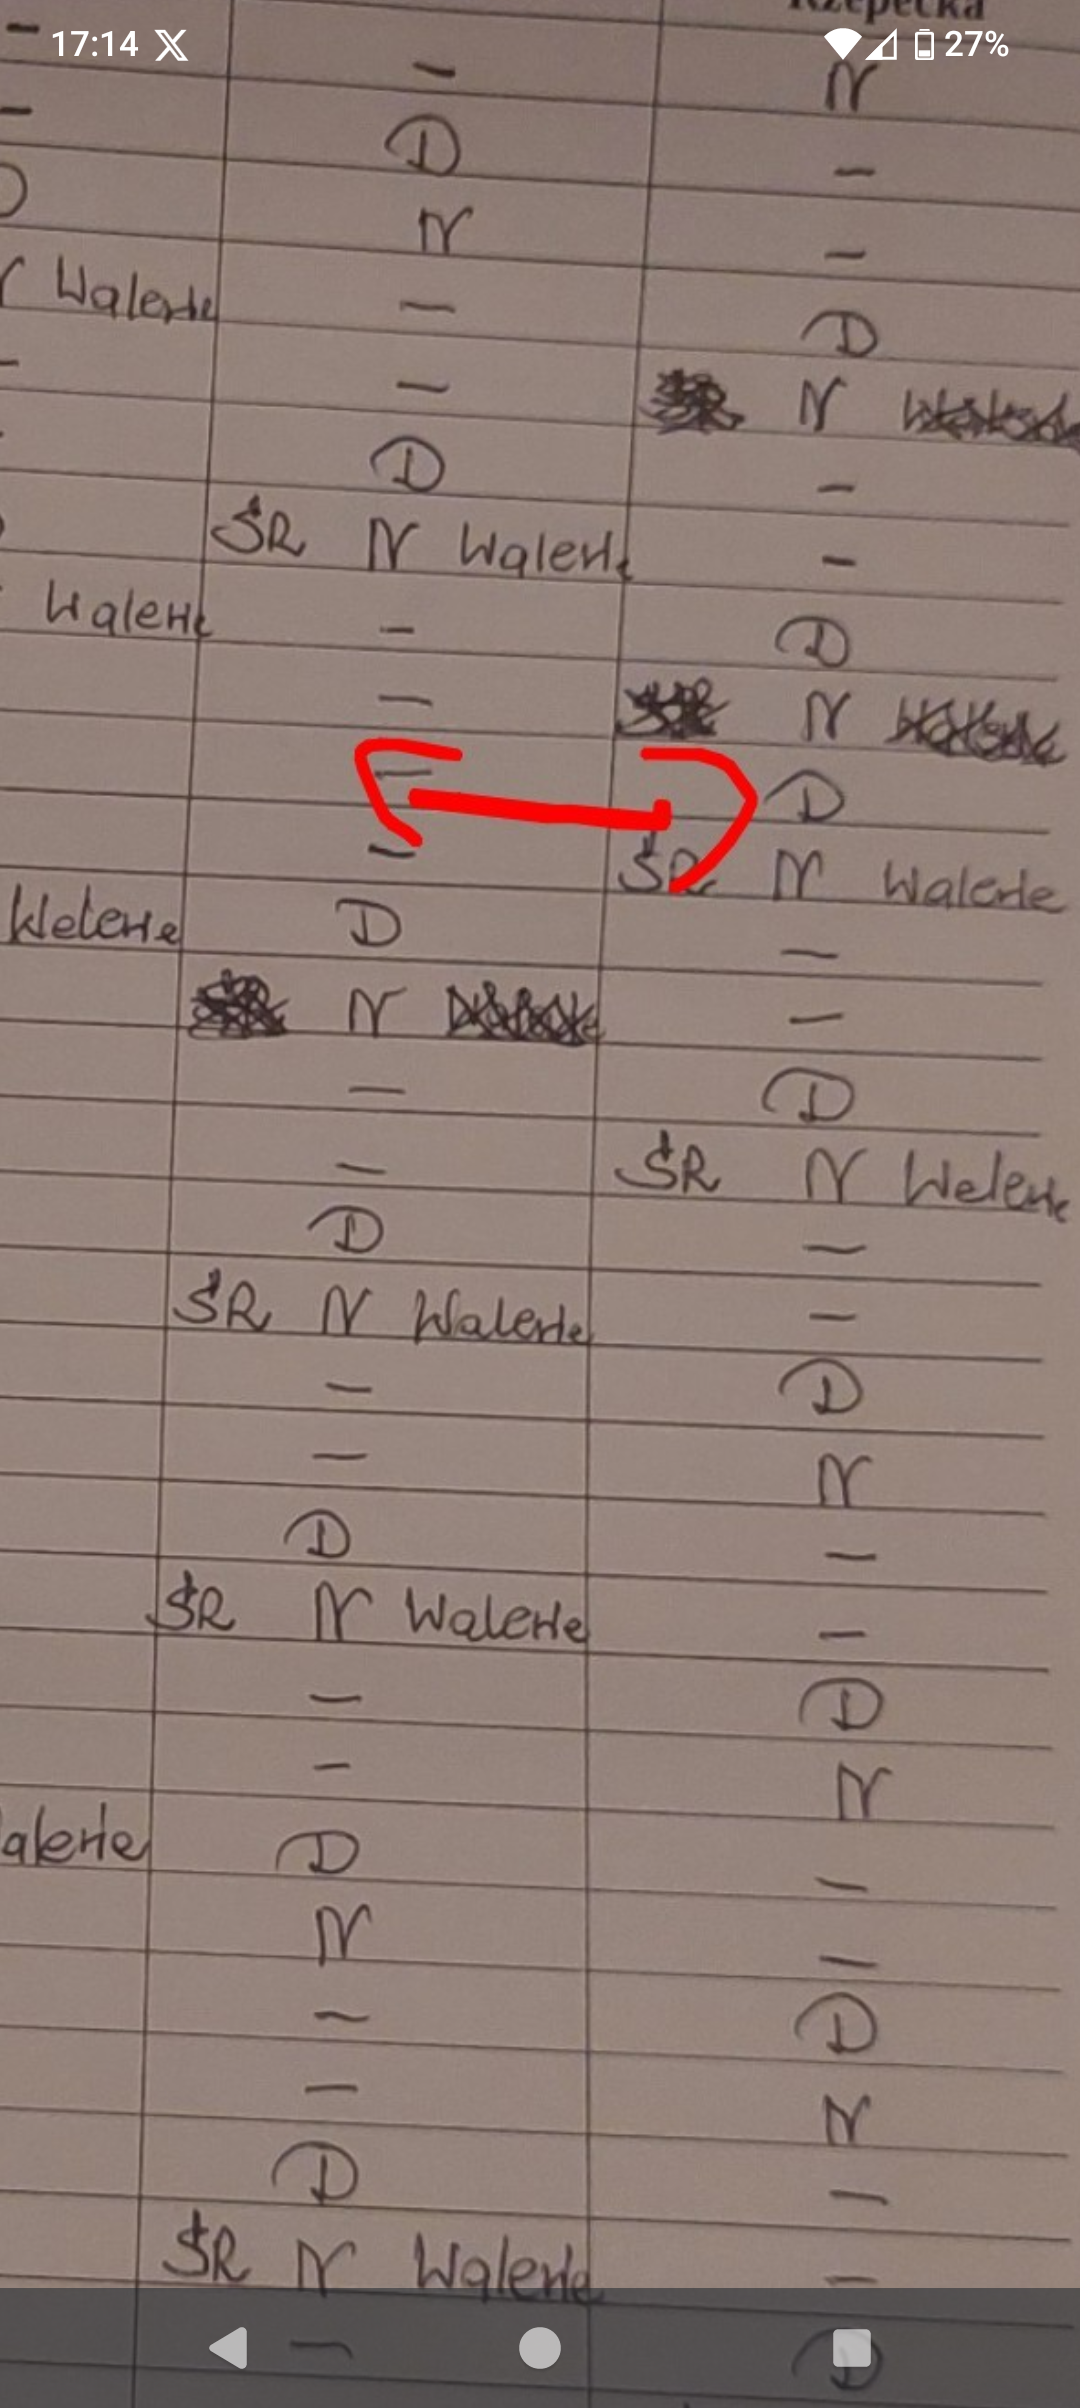 17:14 X 27%
Rzepecka
– – N
– D –
D N –
N Walerie – D
– – N
D –
SR N Walerie –
Walerie – D
– N
– D
– SR N Walerie
Walerie D –
N –
– D
– SR N Walerie
D –
SR N Walerie –
– D
– N
D –
SR N Walerie –
– D
– N
alerie D –
N –
– D
– N
D –
SR N Walerie –
– D